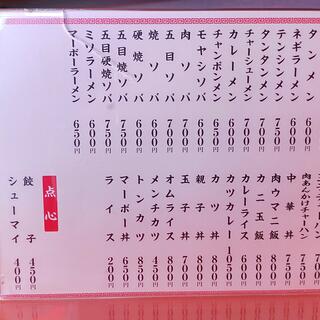 タンメン 600円
ネギラーメン 600円
テンシンメン 750円
タンタンメン 700円
チャーシューメン 750円
カレーメン 600円
チャンポンメン 650円
モヤシソバ 600円
肉ソバ 700円
五目ソバ 700円
焼ソバ 600円
硬焼ソバ 700円
五目焼ソバ 750円
五目硬焼ソバ 750円
ミソラーメン 600円
マーボーラーメン 650円
肉あんかけチャーハン 750円
中華丼 750円
肉ウマニ飯
カニ玉飯 800円
カレーライス
カツカレー 1050円
カツ丼 800円
親子丼
玉子丼
オムライス 800円
メンチカツ 850円
トンカツ 850円
マーボー丼 650円
ライス 200円
点心
餃子 450円
シューマイ 400円